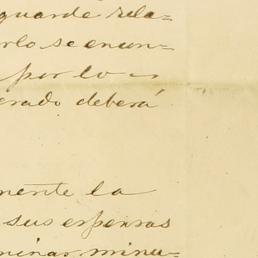 guarde rela=
rlo se enun=
por lo
erado deberá
mente la
sus expensas
minar minu=